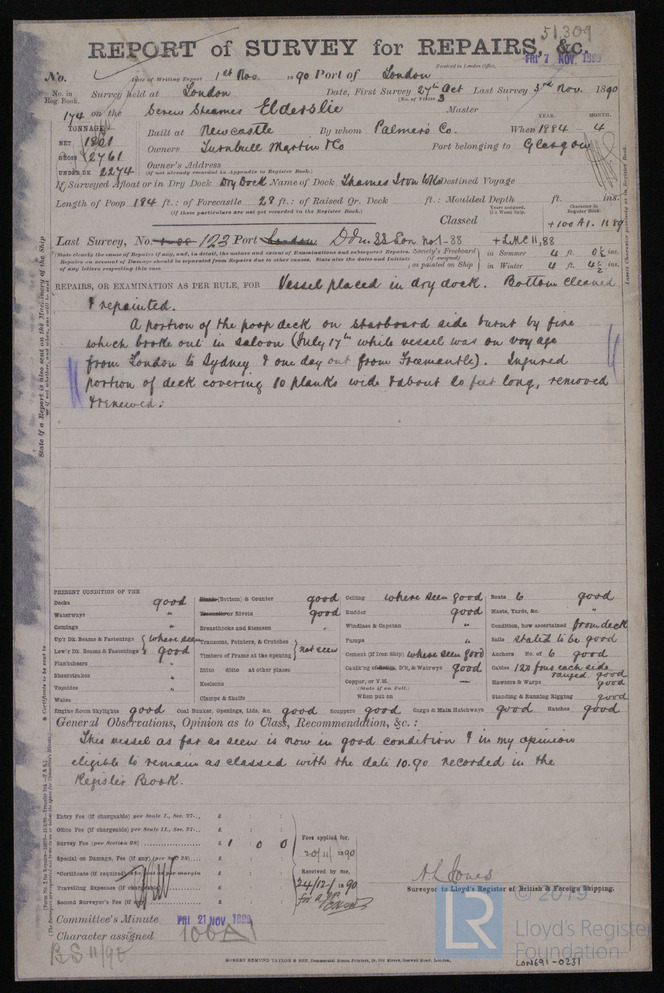 51,309
REPORT of SURVEY for REPAIRS, &c.
Received in London Office, FRI 7 NOV. 1890
No. Date of Writing Report 1st Nov. 1890 Port of London
No. in Reg. Book. Survey held at London Date, First Survey 27th Oct Last Survey 3rd Nov. 1890
(No. of Visits 3
174 on the Screw Steamer Elderslie Master
TONNAGE YEAR. MONTH.
NET 1801 Built at Newcastle By whom Palmers Co. When 1884 4
GROSS 2761 Owners Turnbull Martin & Co Port belonging to Glasgow
UNDER DK 2274 Owner's Address
(If not already recorded in Appendix to Register Book.)
If Surveyed Afloat or in Dry Dock Dry Dock Name of Dock Thames Iron Wks Destined Voyage
Length of Poop 184 ft.: of Forecastle 28 ft.: of Raised Qr. Deck ft.: Moulded Depth ft. ins.
(If these particulars are not yet recorded in the Register Book.)
Classed +100A1. 11 89
Last Survey, No. 123 Port London
+LMC 11,88
in Summer 4 ft. 0½ ins.
in Winter 4 ft. 4½ ins.
REPAIRS, OR EXAMINATION AS PER RULE, FOR Vessel placed in dry dock. Bottom cleaned
& repainted.
A portion of the poop deck on starboard side burnt by fire
which broke out in saloon (July 17th while vessel was on voyage
from London to Sydney & one day out from Freemantle). Injured
portion of deck covering 10 planks wide & about 20 feet long, removed
& renewed:
PRESENT CONDITION OF THE
Decks good (Bottom) & Counter good Ceiling where seen good Boats 6 good
Waterways " or Rivets good Rudder good Masts, Yards, &c. "
Comings " Breasthooks and Stemson " Windlass & Capstan " Condition, how ascertained from deck
Up'r Dk. Beams & Fastenings where seen Transoms, Pointers, & Crutches not seen Pumps " Sails stated to be good
Low'r Dk. Beams & Fastenings good Timbers of Frame at the opening Cement (if Iron Ship) where seen good Anchors No. of 6 good
Plankshears Ditto ditto at other places Caulking of D'k, & Watrwys good Cables 120 fms each side ranged good
Sheerstrakes Keelsons Copper, or Y.M. — Hawsers & Warps good
Topsides Clamps & Shelfs (State if on Felt.) Standing & Running Rigging good
Wales When put on
Engine Room Skylights good Coal Bunker, Openings, Lids, &c. good Scuppers good Cargo & Main Hatchways good Hatches good
General Observations, Opinion as to Class, Recommendation, &c.:
This vessel as far as seen is now in good condition & in my opinion
eligible to remain as classed with the date 10.90 recorded in the
Register Book.
Entry Fee (if chargeable) per Scale I., Sec. 27... £ : :
Office Fee (if chargeable) per Scale II., Sec. 27... £ : :
Survey Fee (per Section 28) £ 1 : 0 : 0 Fees applied for, 20/11/1890
Special on Damage, Fee (if any) (per Sec. 28) £ : :
*Certificate (if required) as per margin £ : : Received by me,
Travelling Expenses (if chargeable) £ : : 24/12/1890
Second Surveyor's Fee (if £ : :
A L Jones
Surveyor to Lloyd's Register of British & Foreign Shipping.
Committee's Minute FRI 21 NOV 1890
Character assigned 100A1
B.S 11/90
© 2019
LR
Lloyd's Register
Foundation
LON691-0231